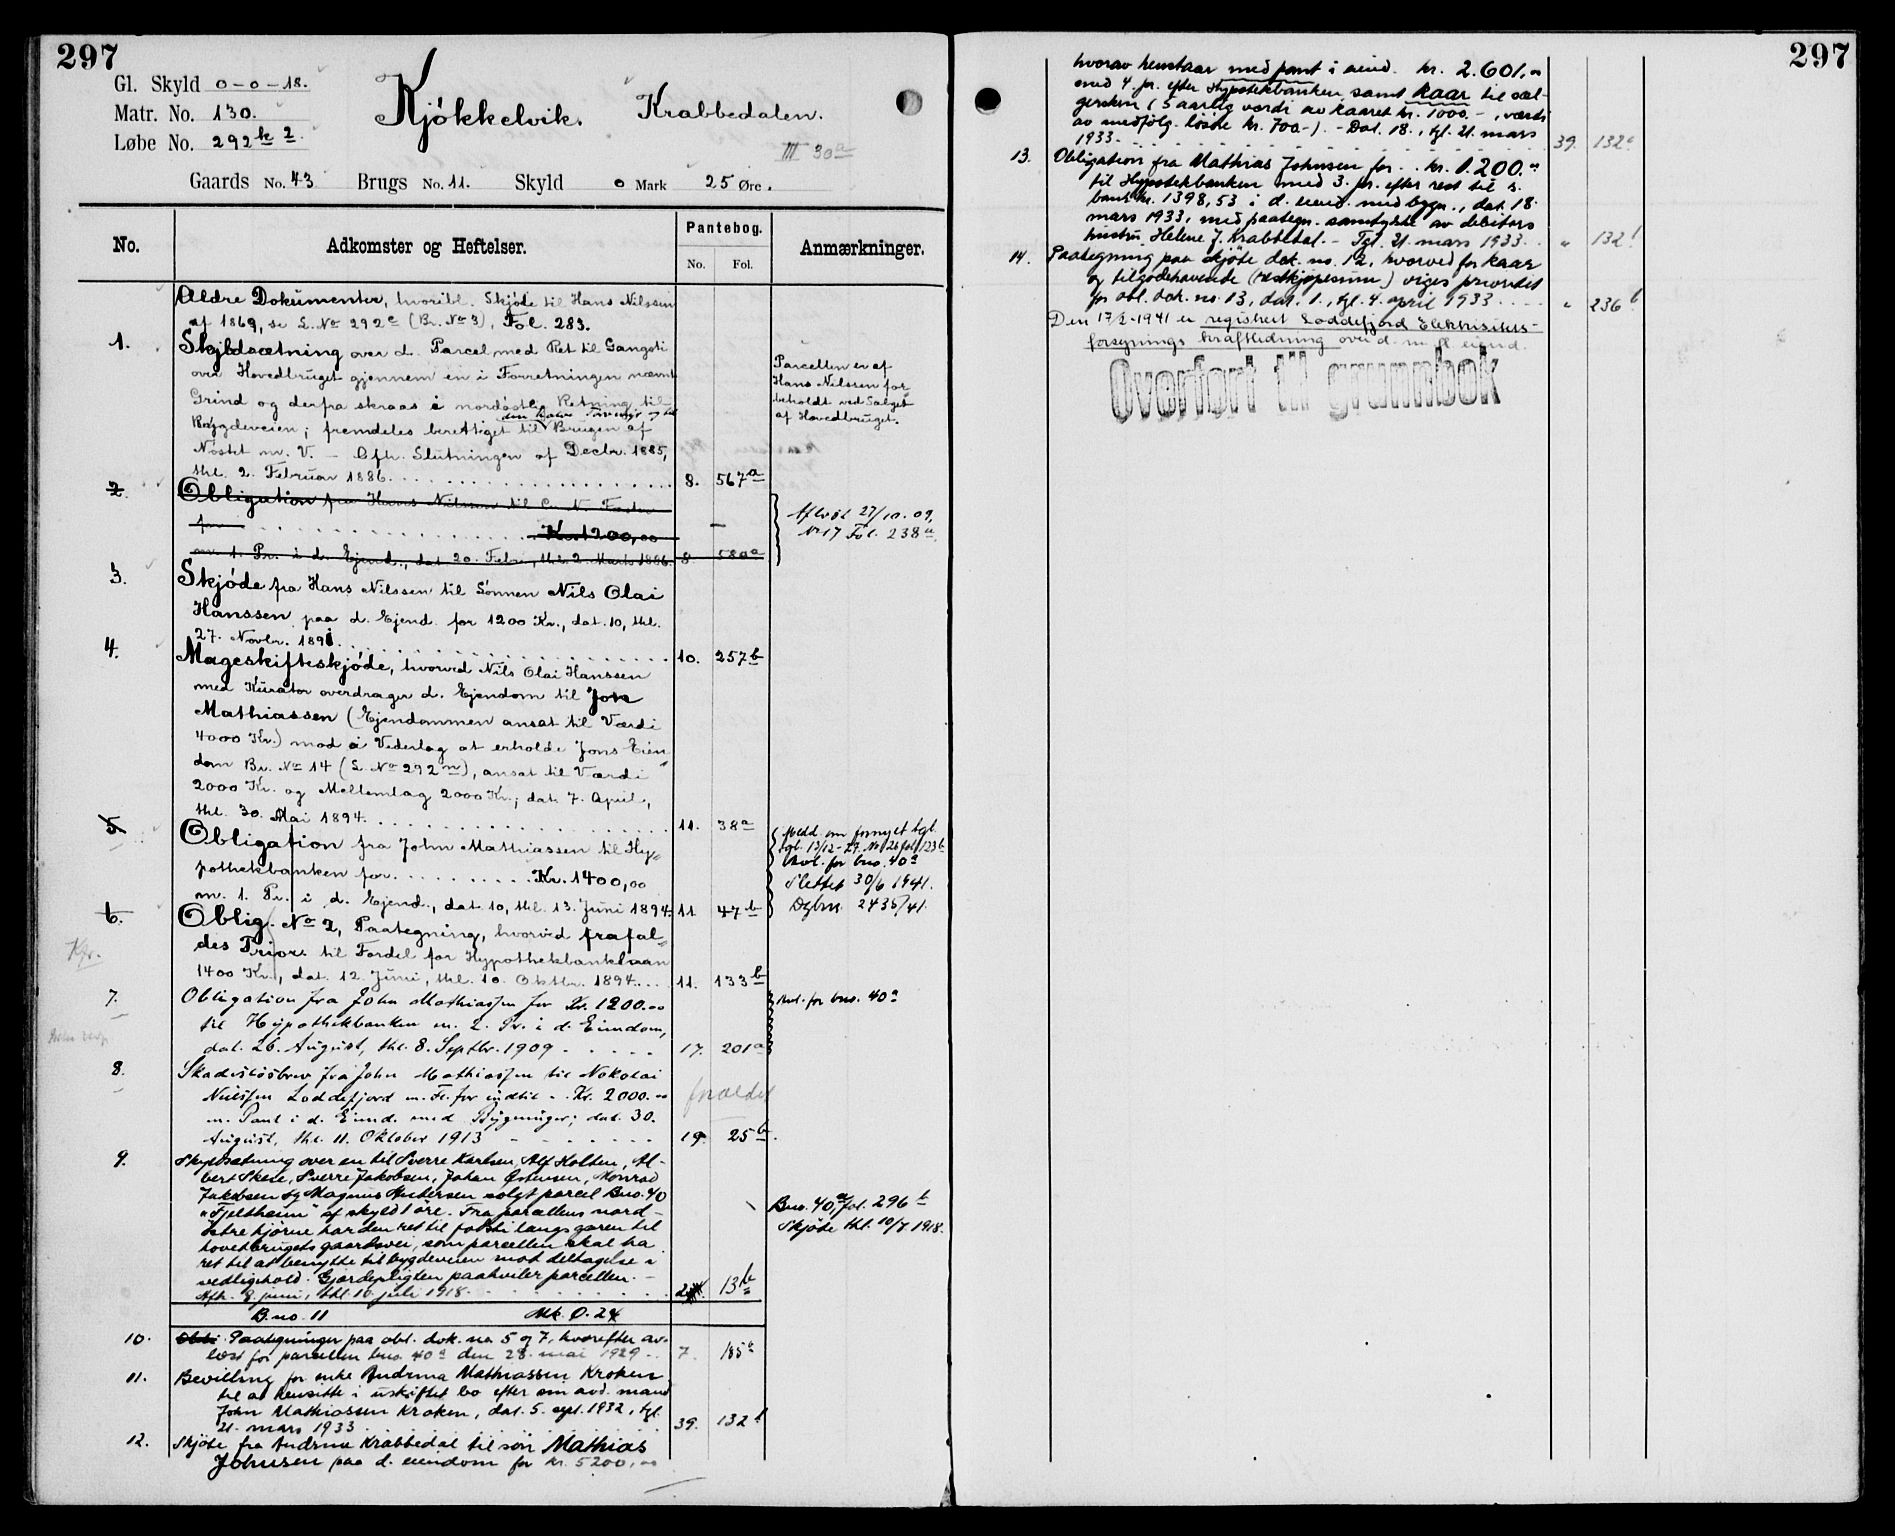 297
Gl. Skyld 0-0-18.
Matr. No. 130.
Løbe No. 292 k 2.
Kjøkkelvik. Krabbedalen.
III 30a
Gaards No. 43 Brugs No. 11. Skyld 0 Mark 25 Øre.
No. Adkomster og Heftelser. Pantebog. No. Fol. Anmærkninger.
Ældre Dokumenter, hvoribl. Skjøde til Hans Nilssen
af 1869, se L. No 292e (Br. No 3), Fol. 283.
1. Skyldsætning over d. Parcel med Ret til Gangsti
over Hovedbruget gjennem en i Forretningen nævnt
Grind og derfra skraas i nordøstlig Retning til
Bygdeveien; fremdeles berettiget til Brugen af
Nøstet m. V. – Afh. Slutningen af Decbr. 1885,
thl. 2. Februar 1886. 8. 567a
Parcellen er af
Hans Nilssen for
beholdt ved Salget
af Hovedbruget.
2. Obligation fra Hans Nilssen til
for Kr. 1200,00
m. 1. Pr. i d. Ejend., dat. 20. Febr., thl. 2. Marts 1886. 8 580a
Aflyst 27/10.09.
No 17 Fol. 238a
3. Skjøde fra Hans Nilssen til Sønnen Nils Olai
Hanssen paa d. Ejend. for 1200 Kr., dat. 10, thl.
27. Novbr. 1891. 10. 257b
4. Mageskifteskjøde, hvorved Nils Olai Hanssen
med Kurator overdrager d. Ejendom til Jon
Mathiassen (Ejendommen ansat til Værdi
4000 Kr.) mod i Vederlag at erholde Jons Eien
dom Br. No 14 (L. No 292m), ansat til Værdi
2000 Kr. og Mellemlag 2000 Kr.; dat. 7. April,
thl. 30. Mai 1894. 11. 38a
5. Obligation fra John Mathiassen til Hy-
pothekbanken for Kr. 1400,00
m. 1. Pr. i d. Ejend., dat. 10, thl. 13. Juni 1894. 11 47b
Medd. om fornyet tgl.
tgl. 13/12-27. No 26 fol. 123b
Avl. for bno. 40a
Slettet 30/6 1941.
Dgbnr. 2436/41.
6. Oblig. No 2, Paategning, hvorved frafal-
des Prior. til Fordel for Hypothekbanklaan
1400 Kr., dat. 12. Juni, thl. 10. Oktbr. 1894. 11. 133b
7. Obligation fra John Mathiassen for Kr. 1200.00
til Hypothekbanken m. 2. Pr. i d. Eiendom,
dat. 26. August, thl. 8. Septbr. 1909 17. 201a
Avl. for bno. 40a
8. Skadesløsbrev fra John Mathiassen til Nikolai
Nielsen Loddefjord m. Fl. for indtil Kr. 2000.00
m. Pant i d. Eiend. med Bygninger; dat. 30.
August, thl. 11. Oktober 1913 19. 25b.
foraldet
9. Skyldsætning over en til Sverre Karlsen, Alf Holten, Al-
bert Skeie, Sverre Jakobsen, Johan Østensen, Konrad
Jakobsen og Magnus solgt parcel Bno. 40
"Fjeltheim" af skyld 1 øre. Fra parcellens nord-
østre hjørne har den ret til fotsti langs garen til
hovedbrugets gaardsvei, som parcellen skal ha
ret til at benytte til bygdeveien mot deltagelse i
vedligehold. Gjærdepligten paahviler parcellen. –
Afh. 8. juni, thl. 10 juli 1918. 13b
Bno. 40a, fol. 296b
Skjøte thl. 10/7. 1918.
B.no. 11 Mk. 0.24
10. Paategninger paa obl. dok. no 5 og 7, hvorefter av-
løst for parcellen bno. 40a den 28. mai 1929 7. 185a
11. Bevilling for enke Andrina Mathiassen Kroken
til at hensitte i uskiftet bo efter sin avd. mand
John Mathiassen Kroken, dat. 5. sept. 1932, tgl.
21. mars 1933 39. 132b
12. Skjøte fra Andrine Krabbedal til søn Mathias
Johnsen paa d. eiendom for kr. 5200,00
297
hvorav henstaar med pant i eiend. kr. 2.601,00
med 4. pr. efter Hypotekbanken samt kaar til sæl-
gersken (5 aarlig værdi av kaaret kr. 1000.-, værdi
av medfølg. løsøre kr. 700.-). - Dat. 18., tgl. 21. mars
1933. 39. 132a
13. Obligation fra Mathias Johnsen for kr. 1.200.00
til Hypotekbanken med 3. pr. efter rest til s.
bank kr. 1398,53 i d. eiend. med bygn., dat. 18.
mars 1933, med paategn. samtykke av debitors
hustru Helene J. Krabbedal. - Tgl. 21. mars 1933. " 132b
14. Paategning paa skjøte dok. no. 12, hvorved for kaar
og tilgodehavende (restkjøpesum) viges prioritet
for obl. dok. no. 13, dat. 1., tgl. 4. april 1933 " 236b
Den 17/2-1941 er registrert Loddefjord Elektrisitets-
forsynings kraftledning over d. m. fl. eiend.
Overført til grunnbok